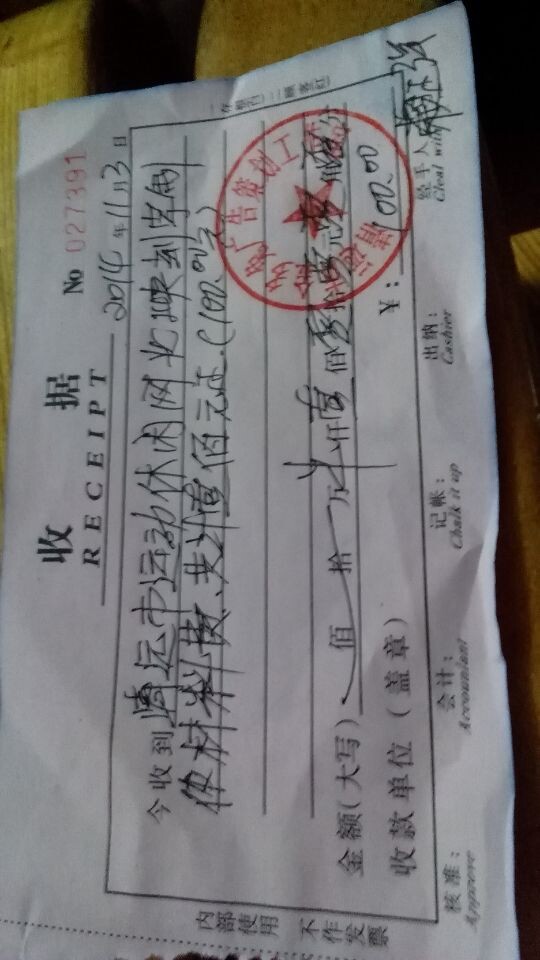 收 据
RECEIPT
No 027391
2014 年 11 月 3 日
今收到 运市运动休闲网 刻字制
作材料费、共计壹佰元正.(100.00元)
金额(大写) 佰 拾 万 仟 壹 佰 零 拾 零 元 零
收款单位(盖章) ¥: 100.00
核准: 会计: 记帐: 出纳: 经手人
Approve Accountant Chalk it up Cashier Cleal with
内部使用
不作发票
广告策划工